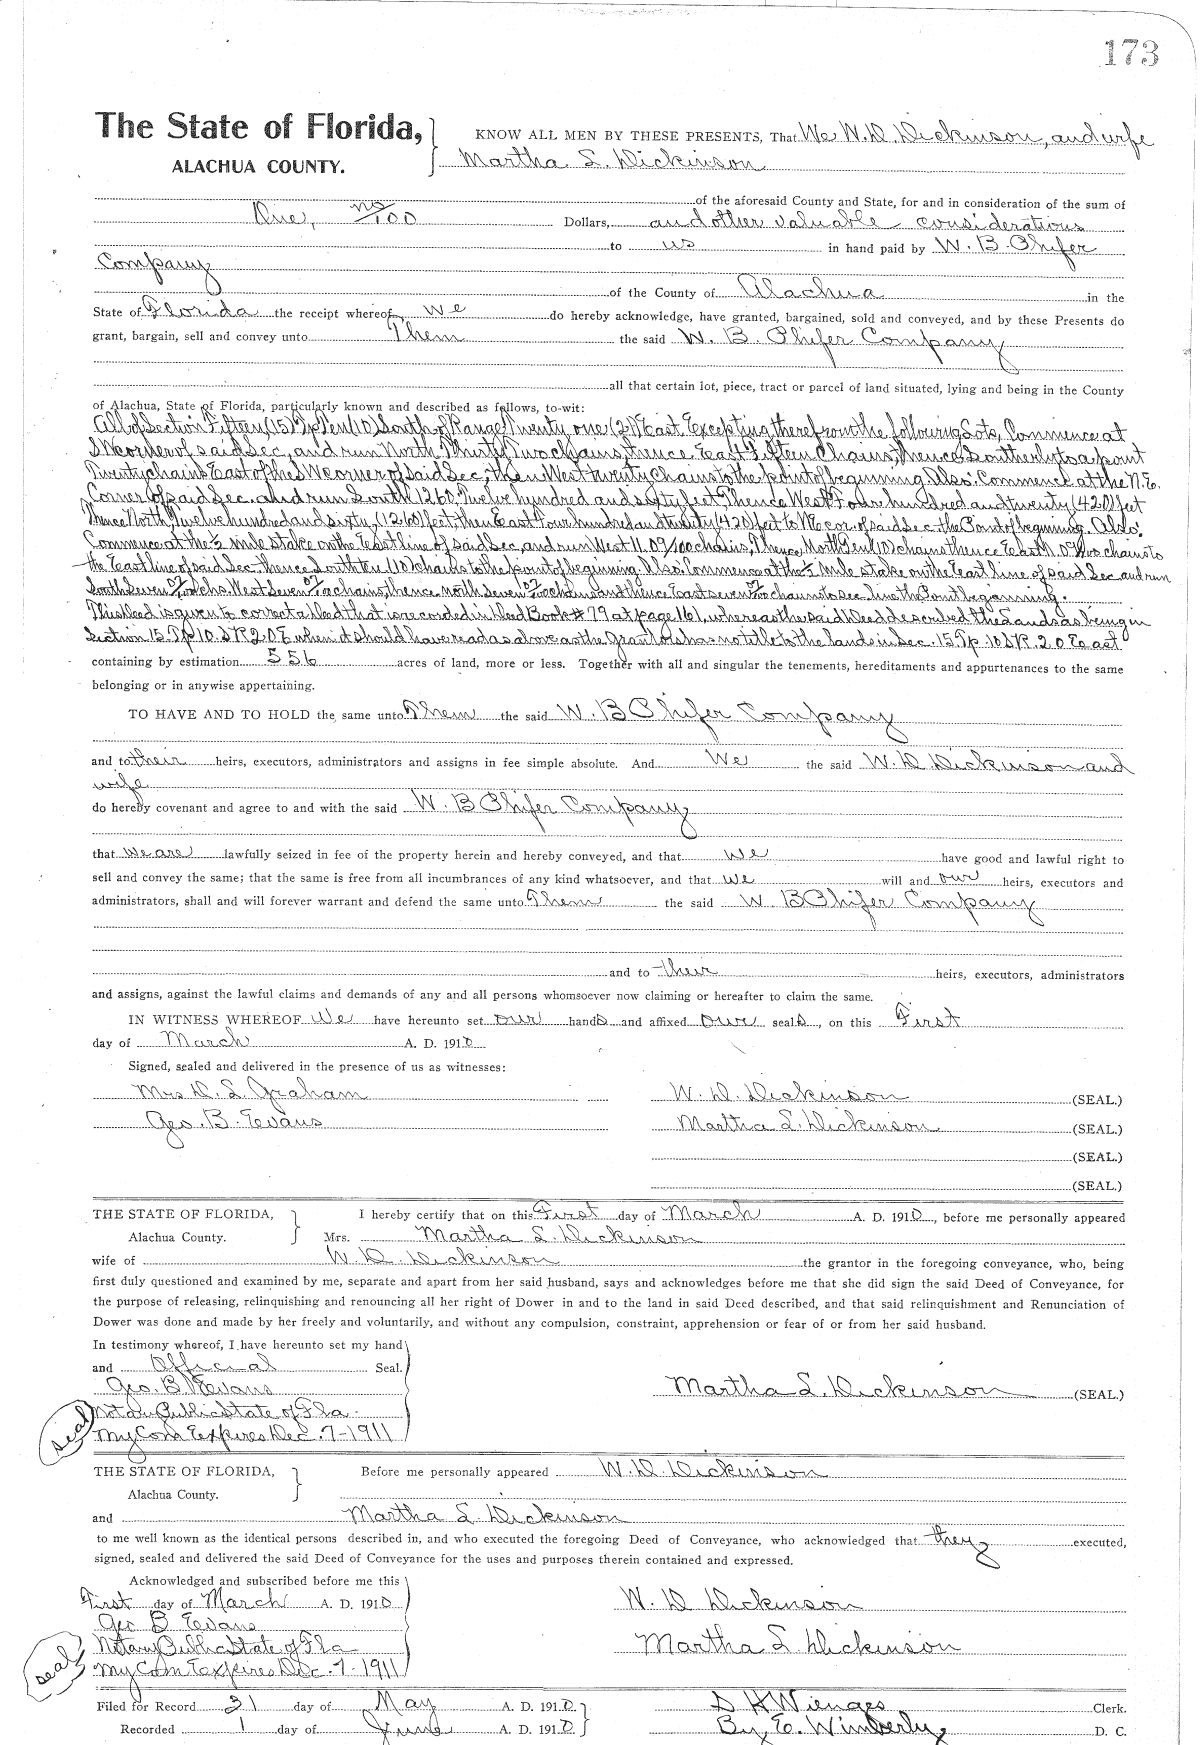 173
The State of Florida,
ALACHUA COUNTY.
KNOW ALL MEN BY THESE PRESENTS, That We W. D. Dickinson, and wife
Martha L. Dickinson
of the aforesaid County and State, for and in consideration of the sum of
One, no/100 Dollars, and other valuable considerations
to us in hand paid by W. B. Phifer
Company
of the County of Alachua in the
State of Florida the receipt whereof we do hereby acknowledge, have granted, bargained, sold and conveyed, and by these Presents do
grant, bargain, sell and convey unto Them the said W. B. Phifer Company
all that certain lot, piece, tract or parcel of land situated, lying and being in the County
of Alachua, State of Florida, particularly known and described as follows, to-wit:
All of Section Fifteen, (15) Tp Ten (10) South of Range Twenty one (21) East Excepting therefrom the following Lots, Commence at
SW corner of said Sec, and run North Thirty Two chains, thence East Fifteen Chains, thence Southerly to a point
Twenty chains East of the SW corner of said Sec, then West twenty chains to the point of beginning. Also. Commence at the N.E.
Corner of said Sec. and run South 1260. Twelve hundred and sixty feet, Thence West Four hundred and twenty (420) feet
Thence North, Twelve hundred and sixty, (1260) feet, then East Four hundred and twenty (420) feet to NE cor. of said Sec. the Point of begining. Also.
Commence at the ½ mile stake on the East line of said Sec, and run West 11.09/100 chains, Thence North Ten (10) chains thence East 11.09/100 chains to
the East line of said Sec. thence South Ten (10) chains to the point of beginning. Also. Commence at the ½ mile stake on the East line of said Sec and run
South Seven 07/100 chs. West Seven 07/100 chains, thence north Seven 07/100 chains and thence East seven 07/100 chains to sec. line the Point beganning.
This deed is given to correct a deed that is recorded in Deed Book # 79 at page 161, whereas the said Deed described the Lands as being in
Section 15. Tp. 10. S R. 20 E when it should have read as above as the Grantors has no title to the lands in Sec. 15. Tp. 10 S R. 20 East
containing by estimation 556 acres of land, more or less. Together with all and singular the tenements, hereditaments and appurtenances to the same
belonging or in anywise appertaining.
TO HAVE AND TO HOLD the same unto Them the said W. B Phifer Company
and to their heirs, executors, administrators and assigns in fee simple absolute. And We the said W. D. Dickinson and
wife
do hereby covenant and agree to and with the said W. B Phifer Company
that we are lawfully seized in fee of the property herein and hereby conveyed, and that we have good and lawful right to
sell and convey the same; that the same is free from all incumbrances of any kind whatsoever, and that we will and our heirs, executors and
administrators, shall and will forever warrant and defend the same unto Them the said W. B Phifer Company
and to their heirs, executors, administrators
and assigns, against the lawful claims and demands of any and all persons whomsoever now claiming or hereafter to claim the same.
IN WITNESS WHEREOF We have hereunto set our hands and affixed our seals, on this First
day of March A. D. 1910
Signed, sealed and delivered in the presence of us as witnesses:
Mrs D. L. Graham W. D. Dickinson (SEAL.)
Geo. B. Evans Martha L. Dickinson (SEAL.)
(SEAL.)
(SEAL.)
THE STATE OF FLORIDA,
Alachua County.
I hereby certify that on this First day of March A. D. 1910, before me personally appeared
Mrs. Martha L. Dickinson
wife of W. D. Dickinson the grantor in the foregoing conveyance, who, being
first duly questioned and examined by me, separate and apart from her said husband, says and acknowledges before me that she did sign the said Deed of Conveyance, for
the purpose of releasing, relinquishing and renouncing all her right of Dower in and to the land in said Deed described, and that said relinquishment and Renunciation of
Dower was done and made by her freely and voluntarily, and without any compulsion, constraint, apprehension or fear of or from her said husband.
In testimony whereof, I have hereunto set my hand
and Official Seal.
Geo. B. Evans
Martha L. Dickinson (SEAL.)
Notary Public State of Fla.
seal
My Com Expires Dec. 7-1911
THE STATE OF FLORIDA,
Alachua County.
Before me personally appeared W. D. Dickinson
and Martha L. Dickinson
to me well known as the identical persons described in, and who executed the foregoing Deed of Conveyance, who acknowledged that they executed,
signed, sealed and delivered the said Deed of Conveyance for the uses and purposes therein contained and expressed.
Acknowledged and subscribed before me this
First day of March A. D. 1910 W. D Dickinson
Geo B Evans
Notary Public State of Fla Martha L. Dickinson
seal
My Com Expires Dec. 7-1911
Filed for Record 31 day of May A. D. 1910. S H Wienges Clerk.
Recorded 1 day of June A. D. 1910 By E. Wimberly D. C.